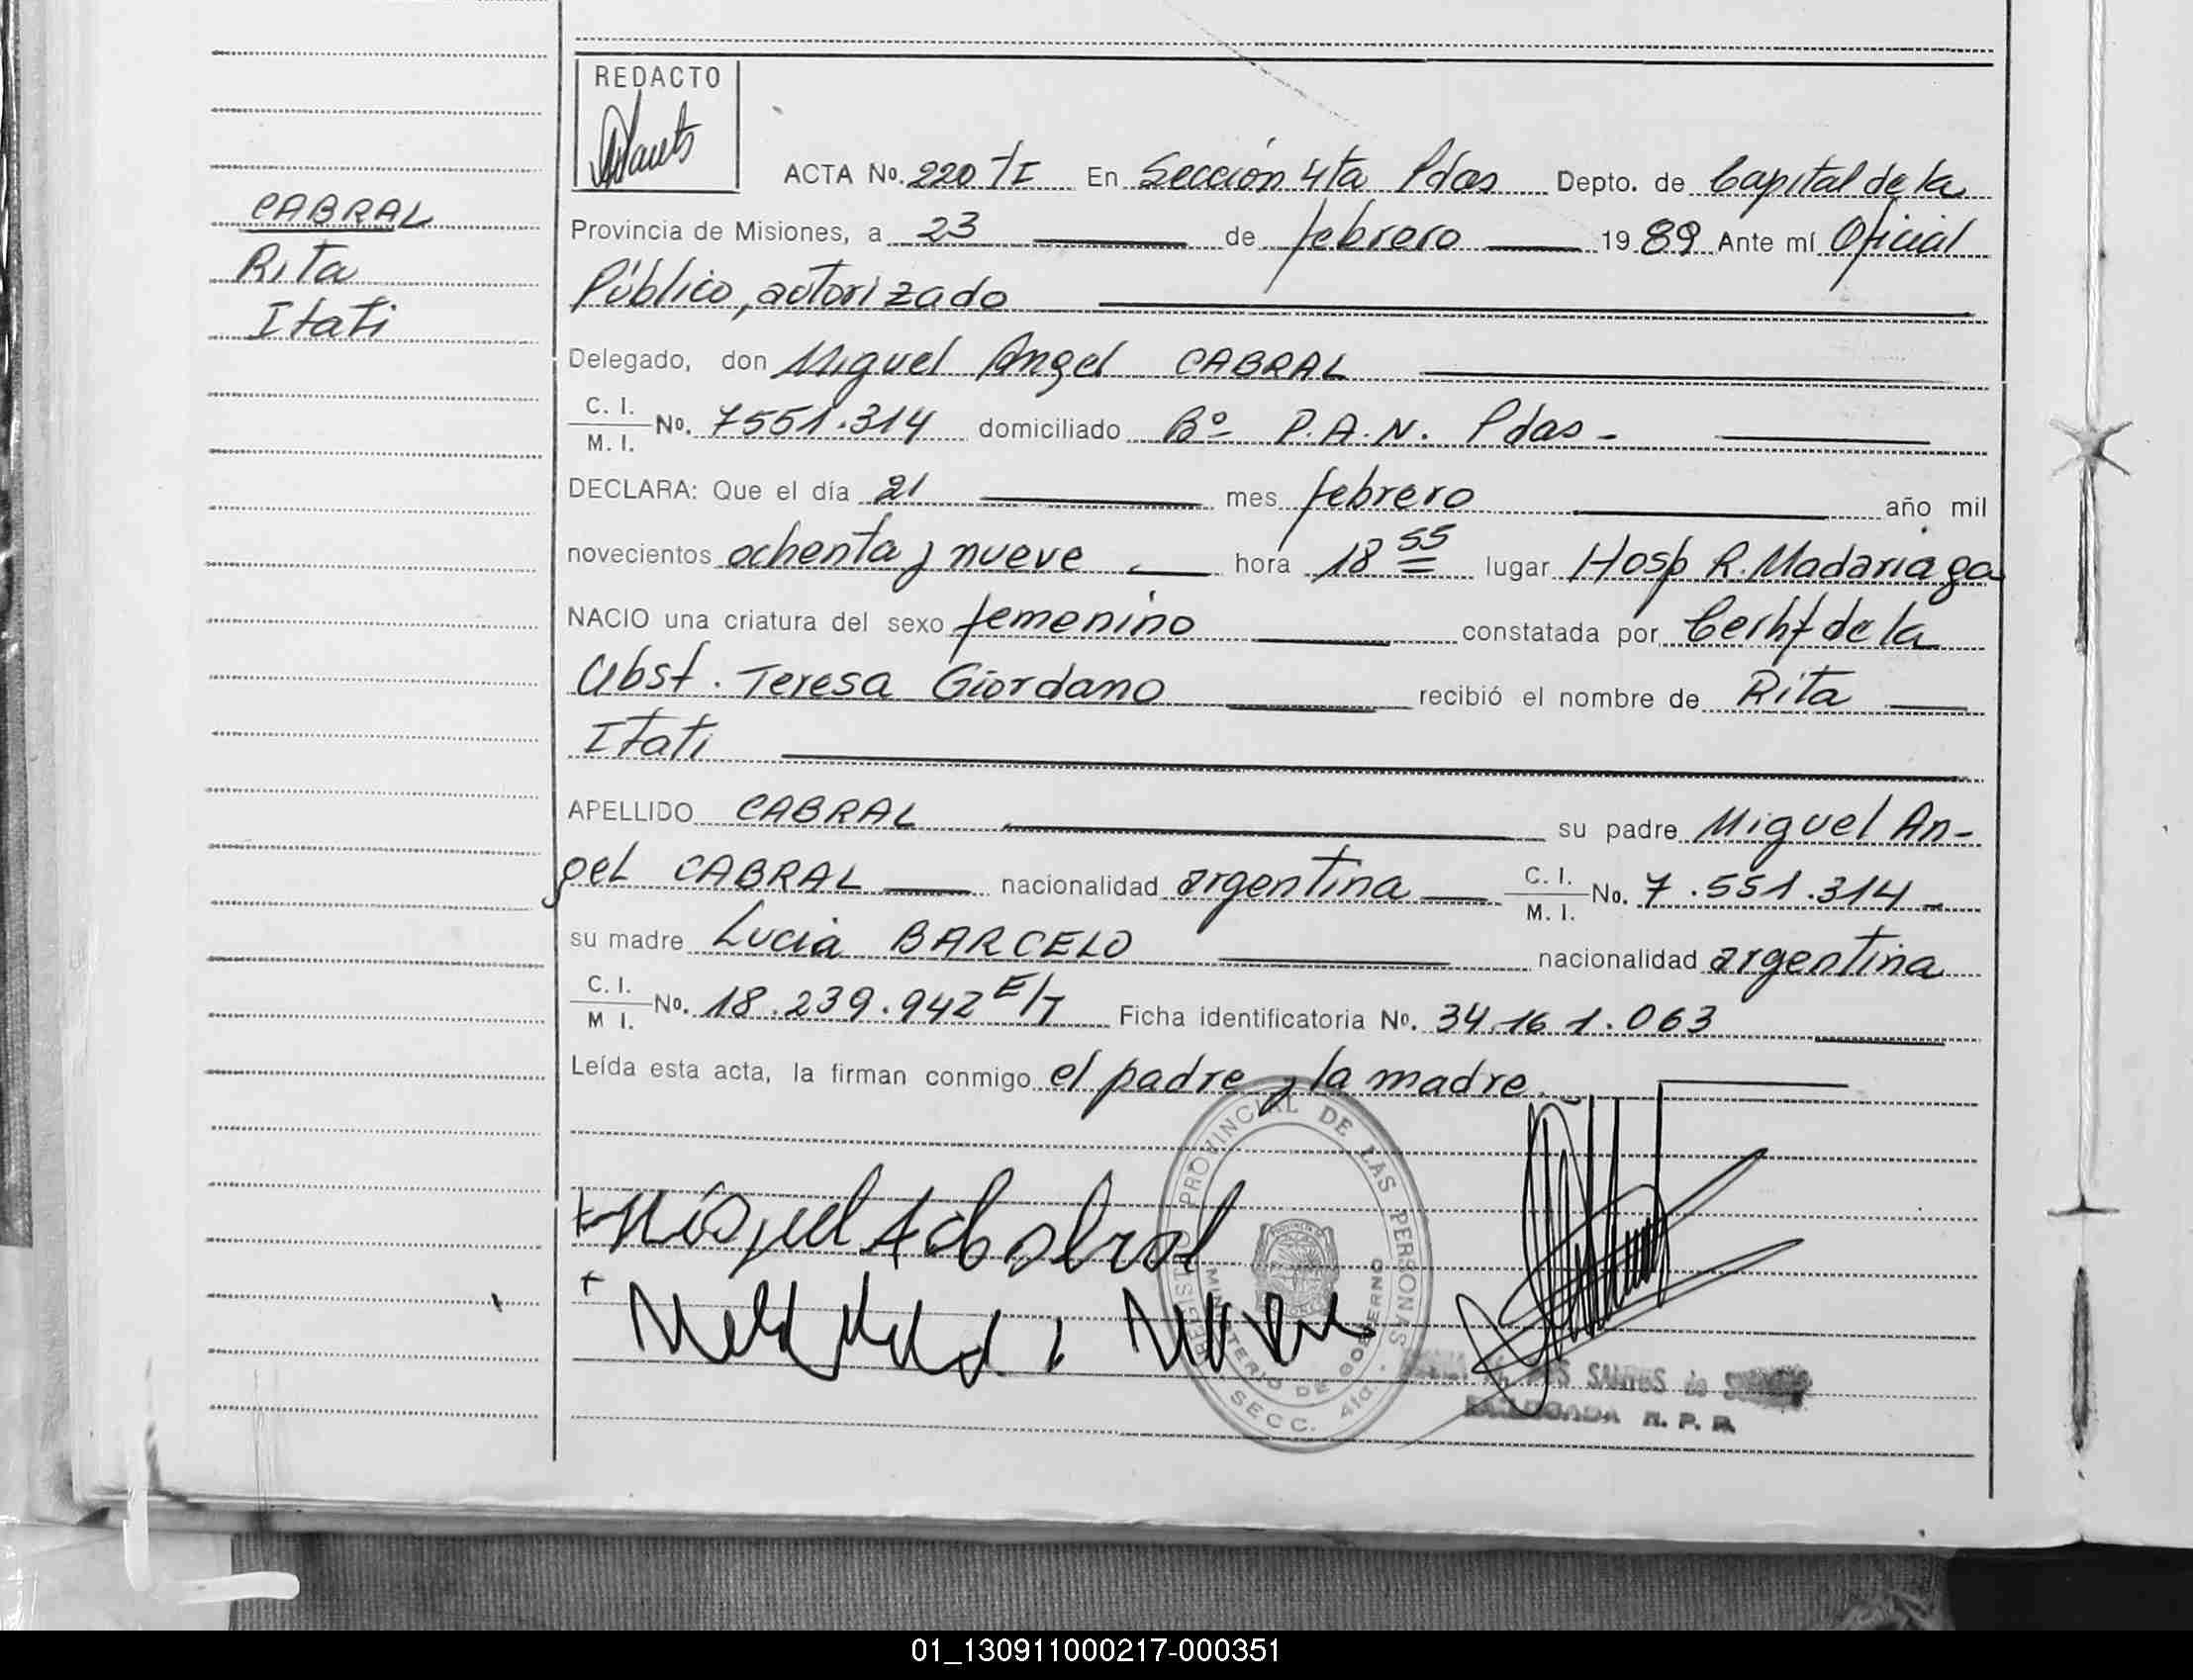 REDACTO
ACTA No. 220 TI En Sección 4ta Pdas Depto. de Capital de la
CABRAL
Rita
Itati
Provincia de Misiones, a 23 de febrero 1989 Ante mí Oficial
Público, autorizado
Delegado, don Miguel Angel CABRAL
C. I. / M. I. No. 7551.314 domiciliado Bº P.A.N. Pdas -
DECLARA: Que el día 21 mes febrero año mil
novecientos ochenta y nueve hora 18 55 lugar Hosp R. Madariaga
NACIO una criatura del sexo femenino constatada por Certif de la
Obst. Teresa Giordano recibió el nombre de Rita
Itati
APELLIDO CABRAL su padre Miguel An-
gel CABRAL nacionalidad argentina C. I. / M. I. No. 7.551.314 -
su madre Lucia BARCELO nacionalidad argentina
C. I. / M I. No. 18.239.942 E/T Ficha identificatoria No. 34.161.063
Leída esta acta, la firman conmigo el padre y la madre.
REGISTRO PROVINCIAL DE LAS PERSONAS
MINISTERIO DE GOBIERNO
SECC. 4ta.
Miguel A Cabral
SANTOS de
DELEGADA R. P. P.
01_130911000217-000351